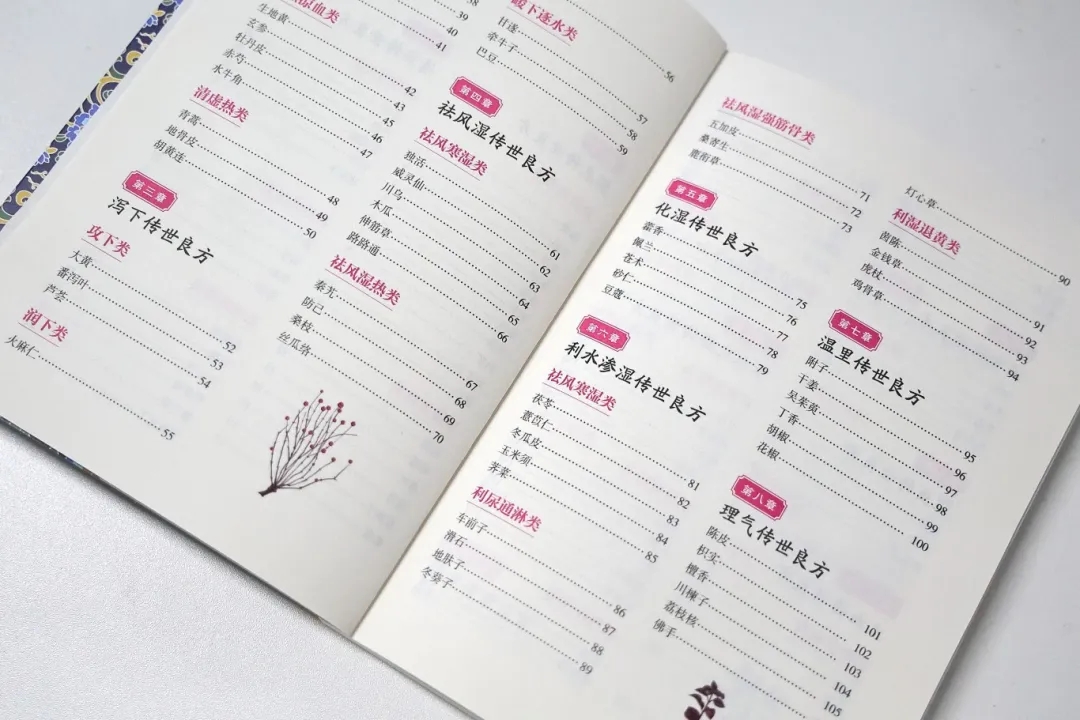 38
39
40
41
凉血类
生地黄 42
玄参 43
牡丹皮 45
赤芍 46
水牛角 47
清虚热类
青蒿 48
地骨皮 49
胡黄连 50
第三章
泻下传世良方
攻下类
大黄 52
番泻叶 53
芦荟 54
润下类
火麻仁 55
56
下逐水类
甘遂 57
牵牛子 58
巴豆 59
第四章
祛风湿传世良方
祛风寒湿类
独活 61
威灵仙 62
川乌 63
木瓜 64
伸筋草 65
路路通 66
祛风湿热类
秦艽 67
防己 68
桑枝 69
丝瓜络 70
祛风湿强筋骨类
五加皮 71
桑寄生 72
鹿衔草 73
第五章
化湿传世良方
藿香 75
佩兰 76
苍术 77
砂仁 78
豆蔻 79
第六章
利水渗湿传世良方
祛风寒湿类
茯苓 81
薏苡仁 82
冬瓜皮 83
玉米须 84
荠菜 85
利尿通淋类
车前子 86
滑石 87
地肤子 88
冬葵子 89
灯心草 90
利湿退黄类
茵陈 91
金钱草 92
虎杖 93
鸡骨草 94
第七章
温里传世良方
附子 95
干姜 96
吴茱萸 97
丁香 98
胡椒 99
花椒 100
第八章
理气传世良方
陈皮 101
枳实 102
檀香 103
川楝子 104
荔枝核 105
佛手